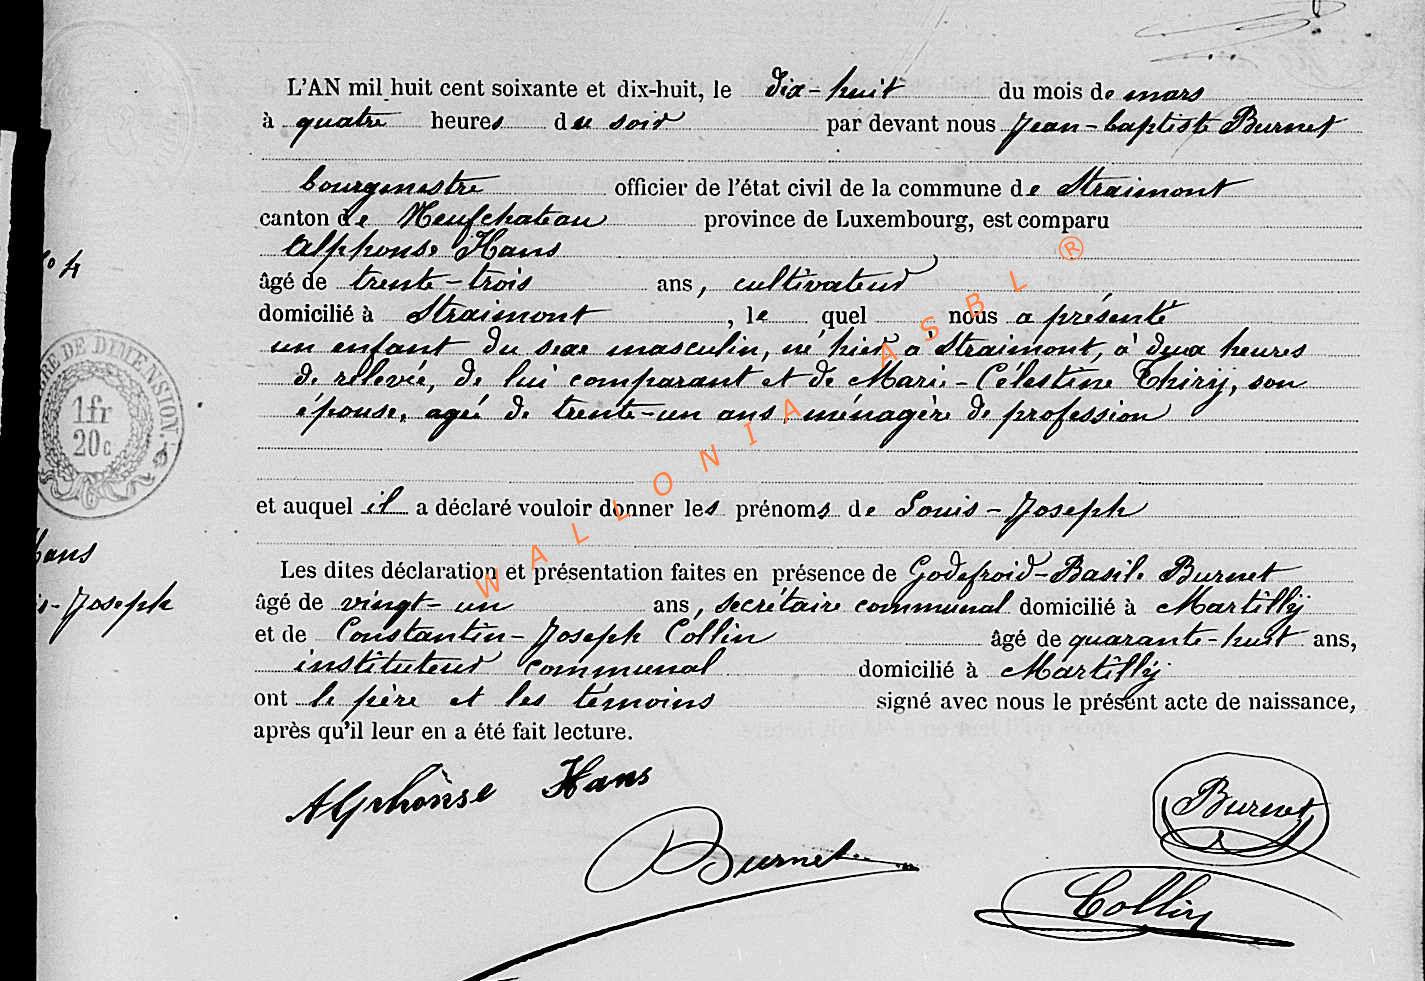 L'AN mil huit cent soixante et dix-huit, le dix-huit du mois de mars
à quatre heures du soir par devant nous Jean-baptiste Burnet
bourgmestre officier de l'état civil de la commune de Straimont
canton de Neufchateau province de Luxembourg, est comparu
Alphonse Hans
âgé de trente-trois ans, cultivateur
domicilié à Straimont, le quel nous a présenté
un enfant du sexe masculin, né hier à Straimont, à deux heures
de relevée, de lui comparant et de Marie-Célestine Thiry, son
épouse, agée de trente-un ans ménagère de profession
et auquel il a déclaré vouloir donner les prénoms de Louis-Joseph
Les dites déclaration et présentation faites en présence de Godefroid-Basile Burnet
âgé de vingt-un ans, secrétaire communal domicilié à Martilly
et de Constantin-Joseph Collin âgé de quarante-huit ans,
instituteur communal domicilié à Martilly
ont le père et les témoins signé avec nous le présent acte de naissance,
après qu'il leur en a été fait lecture.
Alphonse Hans
Burnet
Burnet
Collin
o 4
DE DIMENSION.
1fr
20c
Hans
s-Joseph
WALLONIA ASBL ®